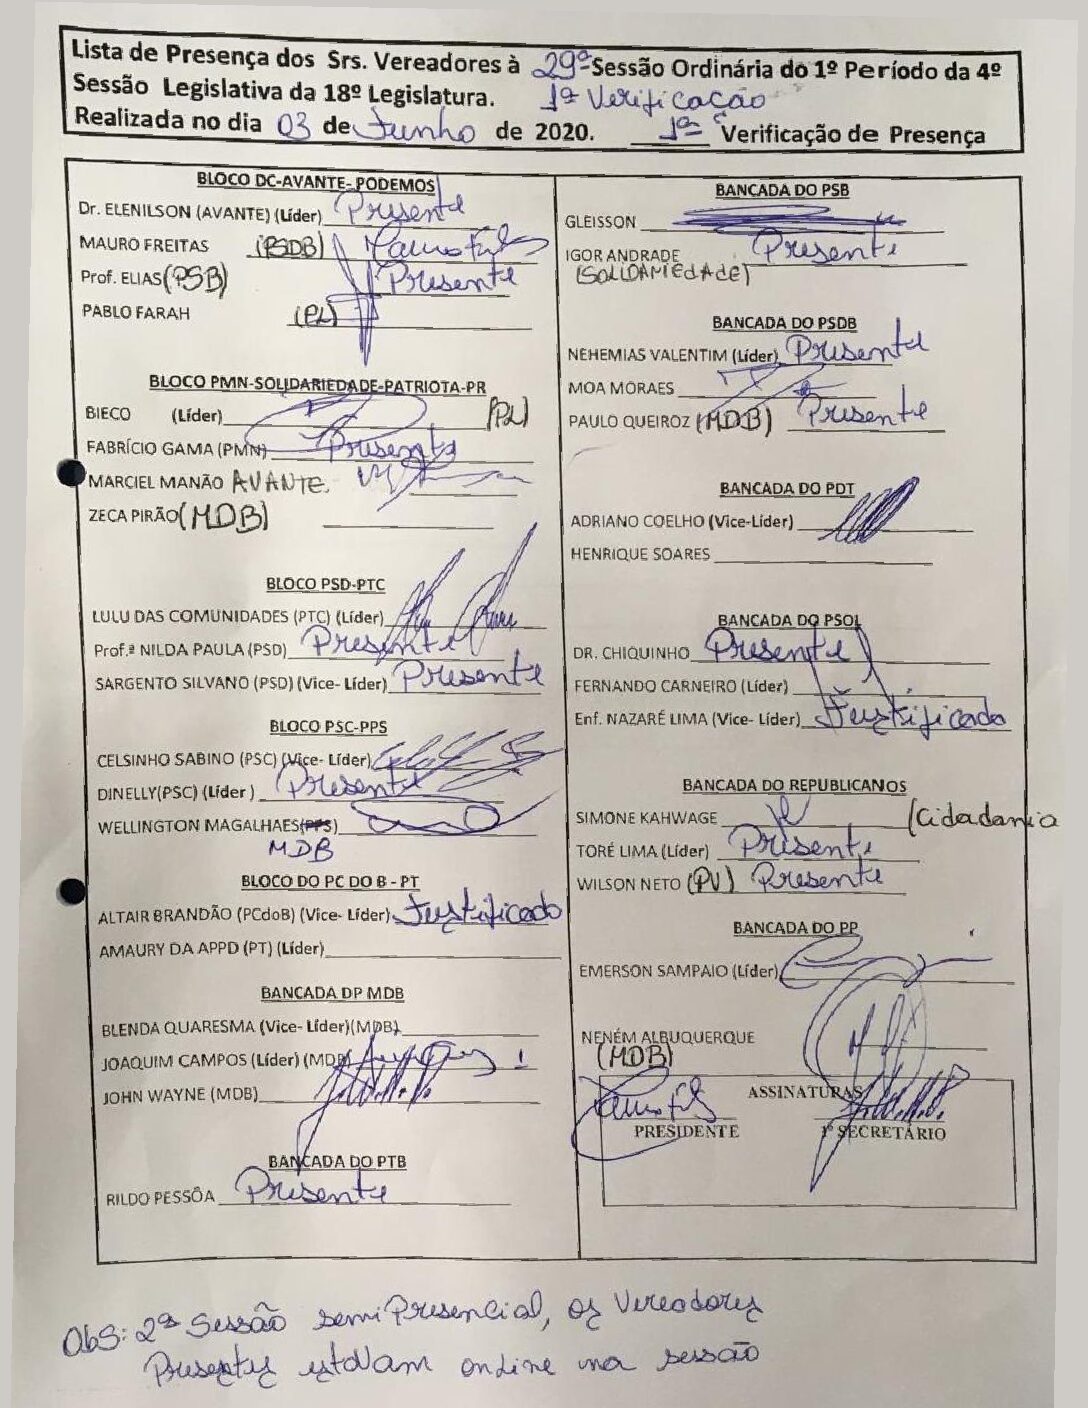 Lista de Presença dos Srs. Vereadores à 29ª Sessão Ordinária do 1º Período da 4º
Sessão Legislativa da 18º Legislatura. 1ª Verificação
Realizada no dia 03 de Junho de 2020. 1ª Verificação de Presença
BLOCO DC-AVANTE- PODEMOS
Dr. ELENILSON (AVANTE) (Líder) Presente
MAURO FREITAS (PSDB)
Prof. ELIAS (PSB) Presente
PABLO FARAH (PL)
BLOCO PMN-SOLIDARIEDADE-PATRIOTA-PR
BIECO (Líder) (PL)
FABRÍCIO GAMA (PMN) Presente
MARCIEL MANÃO AVANTE.
ZECA PIRÃO (MDB)
BLOCO PSD-PTC
LULU DAS COMUNIDADES (PTC) (Líder)
Prof.ª NILDA PAULA (PSD) Presente
SARGENTO SILVANO (PSD) (Vice- Líder) Presente
BLOCO PSC-PPS
CELSINHO SABINO (PSC) (Vice- Líder)
DINELLY(PSC) (Líder ) Presente
WELLINGTON MAGALHAES(PPS)
MDB
BLOCO DO PC DO B - PT
ALTAIR BRANDÃO (PCdoB) (Vice- Líder) Justificado
AMAURY DA APPD (PT) (Líder)
BANCADA DP MDB
BLENDA QUARESMA (Vice- Líder)(MDB)
JOAQUIM CAMPOS (Líder) (MDB)
JOHN WAYNE (MDB)
BANCADA DO PTB
RILDO PESSÔA Presente
BANCADA DO PSB
GLEISSON
IGOR ANDRADE Presente
(SOLIDARIEDADE)
BANCADA DO PSDB
NEHEMIAS VALENTIM (Líder) Presente
MOA MORAES
PAULO QUEIROZ (MDB) Presente
BANCADA DO PDT
ADRIANO COELHO (Vice-Líder)
HENRIQUE SOARES
BANCADA DO PSOL
DR. CHIQUINHO Presente
FERNANDO CARNEIRO (Líder)
Enf. NAZARÉ LIMA (Vice- Líder) Justificada
BANCADA DO REPUBLICANOS
SIMONE KAHWAGE (Cidadania
TORÉ LIMA (Líder) Presente
WILSON NETO (PV) Presente
BANCADA DO PP
EMERSON SAMPAIO (Líder)
NENÉM ALBUQUERQUE
(MDB)
ASSINATURAS
PRESIDENTE 1º SECRETÁRIO
Obs: 2ª Sessão semiPresencial, os Vereadores
Presentes estavam online na sessão